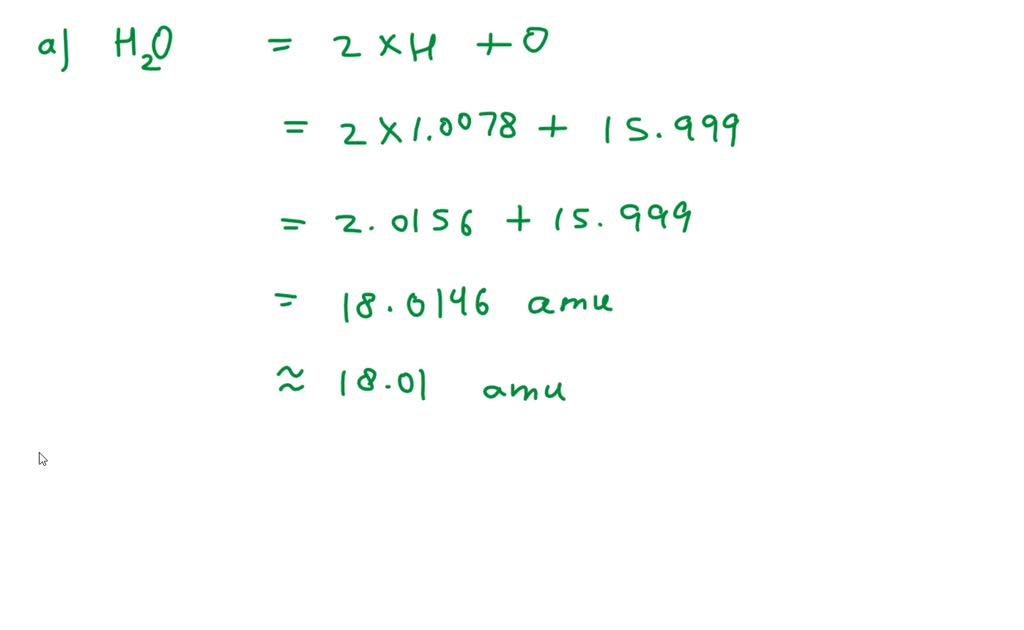 a) H₂O = 2 × H + O
= 2 × 1.0078 + 15.999
= 2.0156 + 15.999
= 18.0146 amu
≈ 18.01 amu